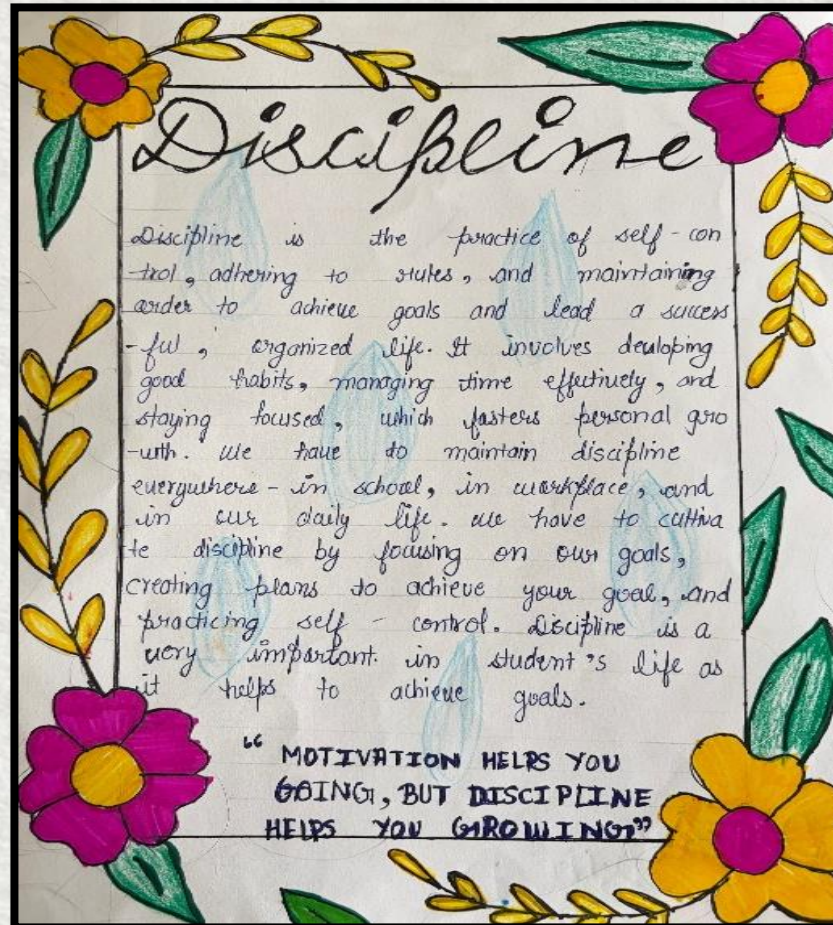 Discipline
Discipline is the practice of self-con
trol, adhering to rules, and maintaining
order to achieve goals and lead a success
-ful, organized life. It involves devloping
good habits, managing time effectively, and
staying focused, which fasters personal gro
-wth. We have to maintain discipline
everywhere - in school, in workplace, and
in our daily life. We have to cultiva
te discipline by focusing on our goals,
creating plans to achieve your goal, and
practicing self - control. Discipline is a
very important in student's life as
it helps to achieve goals.
“ MOTIVATION HELPS YOU
GOING, BUT DISCIPLINE
HELPS YOU GROWING”